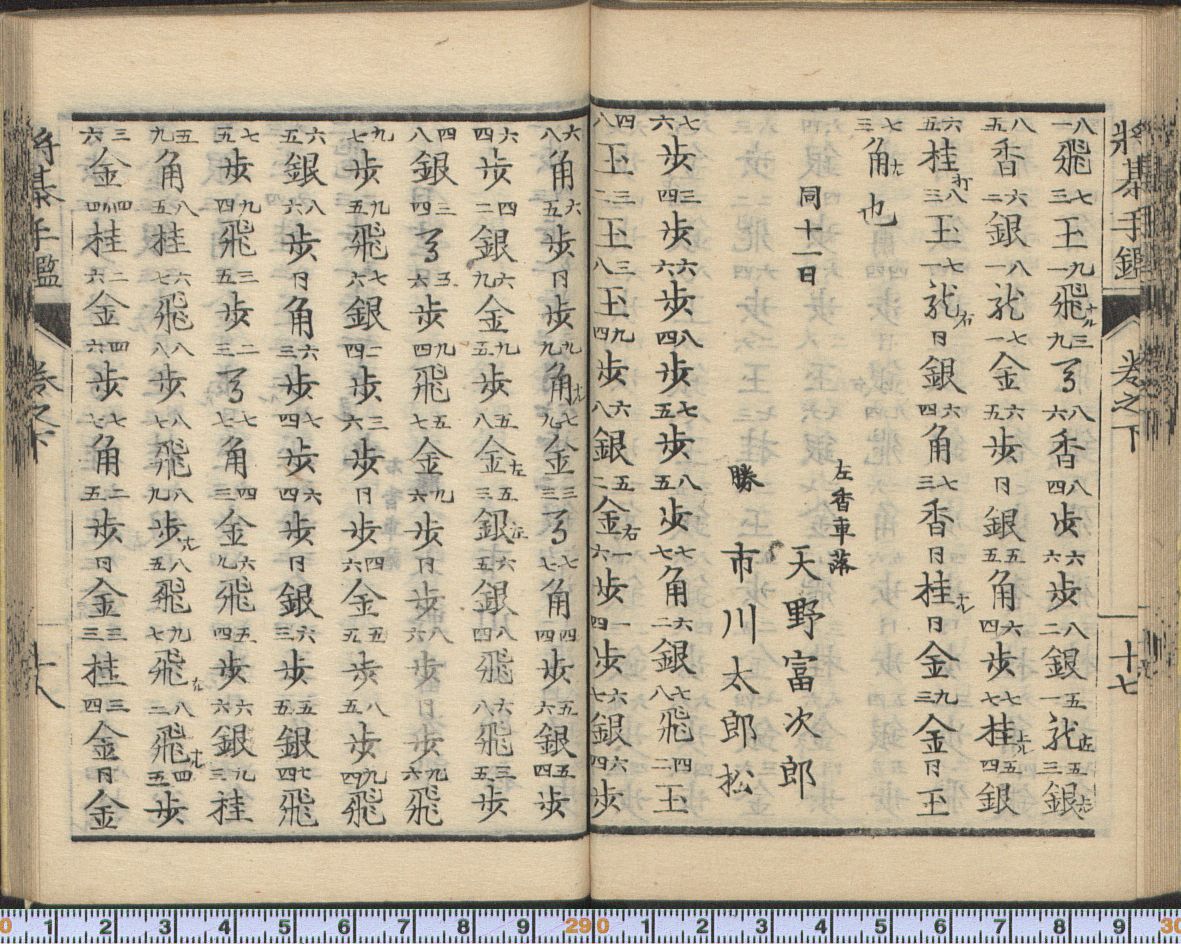 将棊手鑑　巻之下　十七
八一飛七三玉九一飛ナル三九る八六香八四歩六六歩八二銀五一龍左五三銀上
八五香六二銀八一龍七一金六五歩同銀五五角六四歩七七桂上五四銀
六五桂打八三玉七一龍右同銀六四角七三香同桂ナル同金九三金同玉
七三角ナル也
同十一日
左香車落
天野富次郎
勝　市川太郎松
七六歩三四歩六六歩八四歩七五歩八五歩七七角六二銀七八飛四二玉
四八玉三二玉三八玉九四歩六八銀五二金右一六歩一四歩六七銀六四歩
六八角六五歩同歩九九角ナル七九金三三る七七角四四歩五六銀五四歩
六四歩四二銀六九金九五歩五八金左五三銀左六五銀八四飛六六飛三五歩
四八銀三四る五六歩九四飛五七金九六歩同歩八六歩同歩九六飛
九七歩九五飛七六銀二四歩三六歩同歩四六金五五歩八五歩九四飛
六五銀八六歩同角六三歩七四歩六四歩同銀六三歩五五銀七四飛
七五歩九四飛三五歩二三る七四角四三金六九飛五四歩六六銀九三桂
五九角八五桂六七飛八八歩八七飛八九歩ナル八五飛九七飛ナル八二飛ナル四五歩
三六金四四桂二六金四六歩七七角二五歩同金三三桂三四金同金
将棊手鑑　巻之下　十八
0 1 2 3 4 5 6 7 8 9 29 0 1 2 3 4 5 6 7 8 9 30